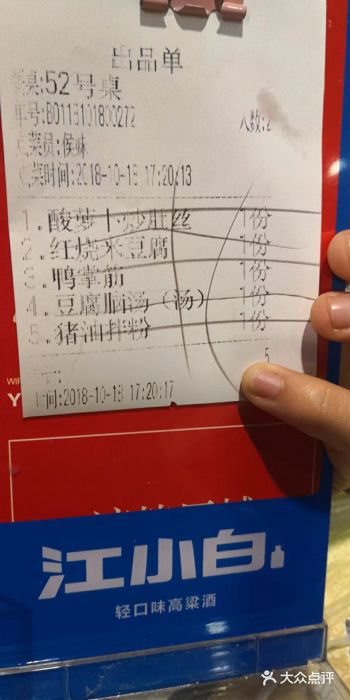 出品单
桌:52号桌
单号:B0118101800272
人数:2
点菜员:侯妹
点菜时间:2018-10-18 17:20:13
1.酸萝卜炒肚丝 1份
2.红烧米豆腐 1份
3.鸭掌筋 1份
4.豆腐脑汤(汤) 1份
5.猪油拌粉 1份
5
时间:2018-10-18 17:20:17
江小白
轻口味高粱酒
大众点评